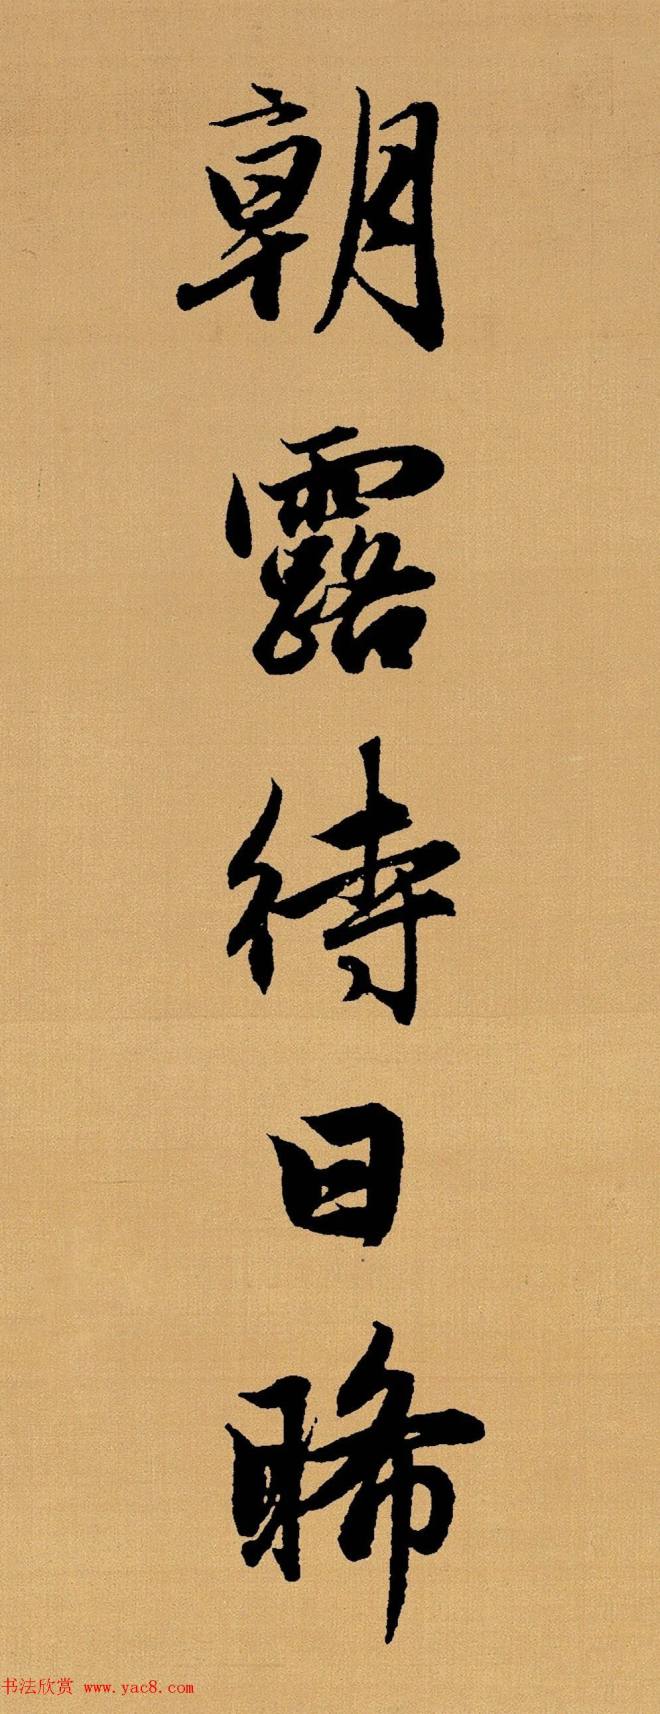 朝露待日晞
书法欣赏 www.yac8.com